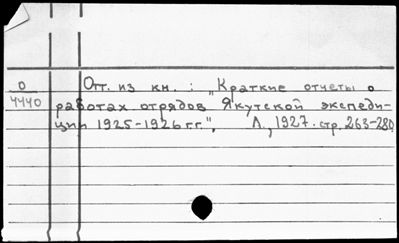 О
4440
Отт. из кн.: „Краткие отчеты о
работах отрядов Якутской экспеди-
ции 1925-1926 гг.", Л., 1927. стр. 263-280.